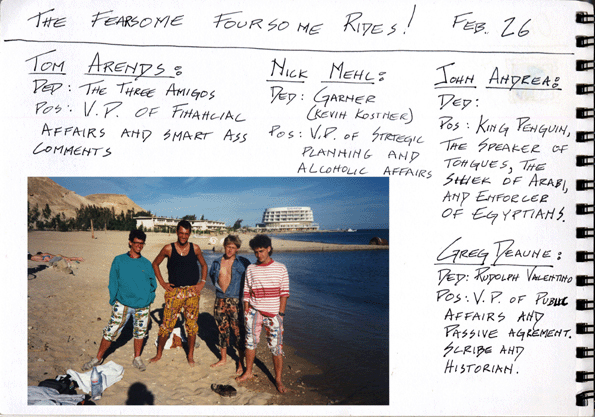 THE FEARSOME FOURSOME RIDES! FEB. 26
TOM ARENDS:
DED: THE THREE AMIGOS
POS: V.P. OF FINANCIAL
AFFAIRS AND SMART ASS
COMMENTS
NICK MEHL:
DED: GARNER
(KEVIN KOSTNER)
POS: V.P. OF STRTEGIC
PLANNING AND
ALCOHOLIC AFFAIRS
JOHN ANDREA:
DED:
POS: KING PENGUIN,
THE SPEAKER OF
TONGUES, THE
SHIEK OF ARABI,
AND ENFORCER
OF EGYPTIANS.
GREG DEAUNE:
DED: RUDOLPH VALENTINO
POS: V.P. OF PUBLIC
AFFAIRS AND
PASSIVE AGREMENT.
SCRIBE AND
HISTORIAN.